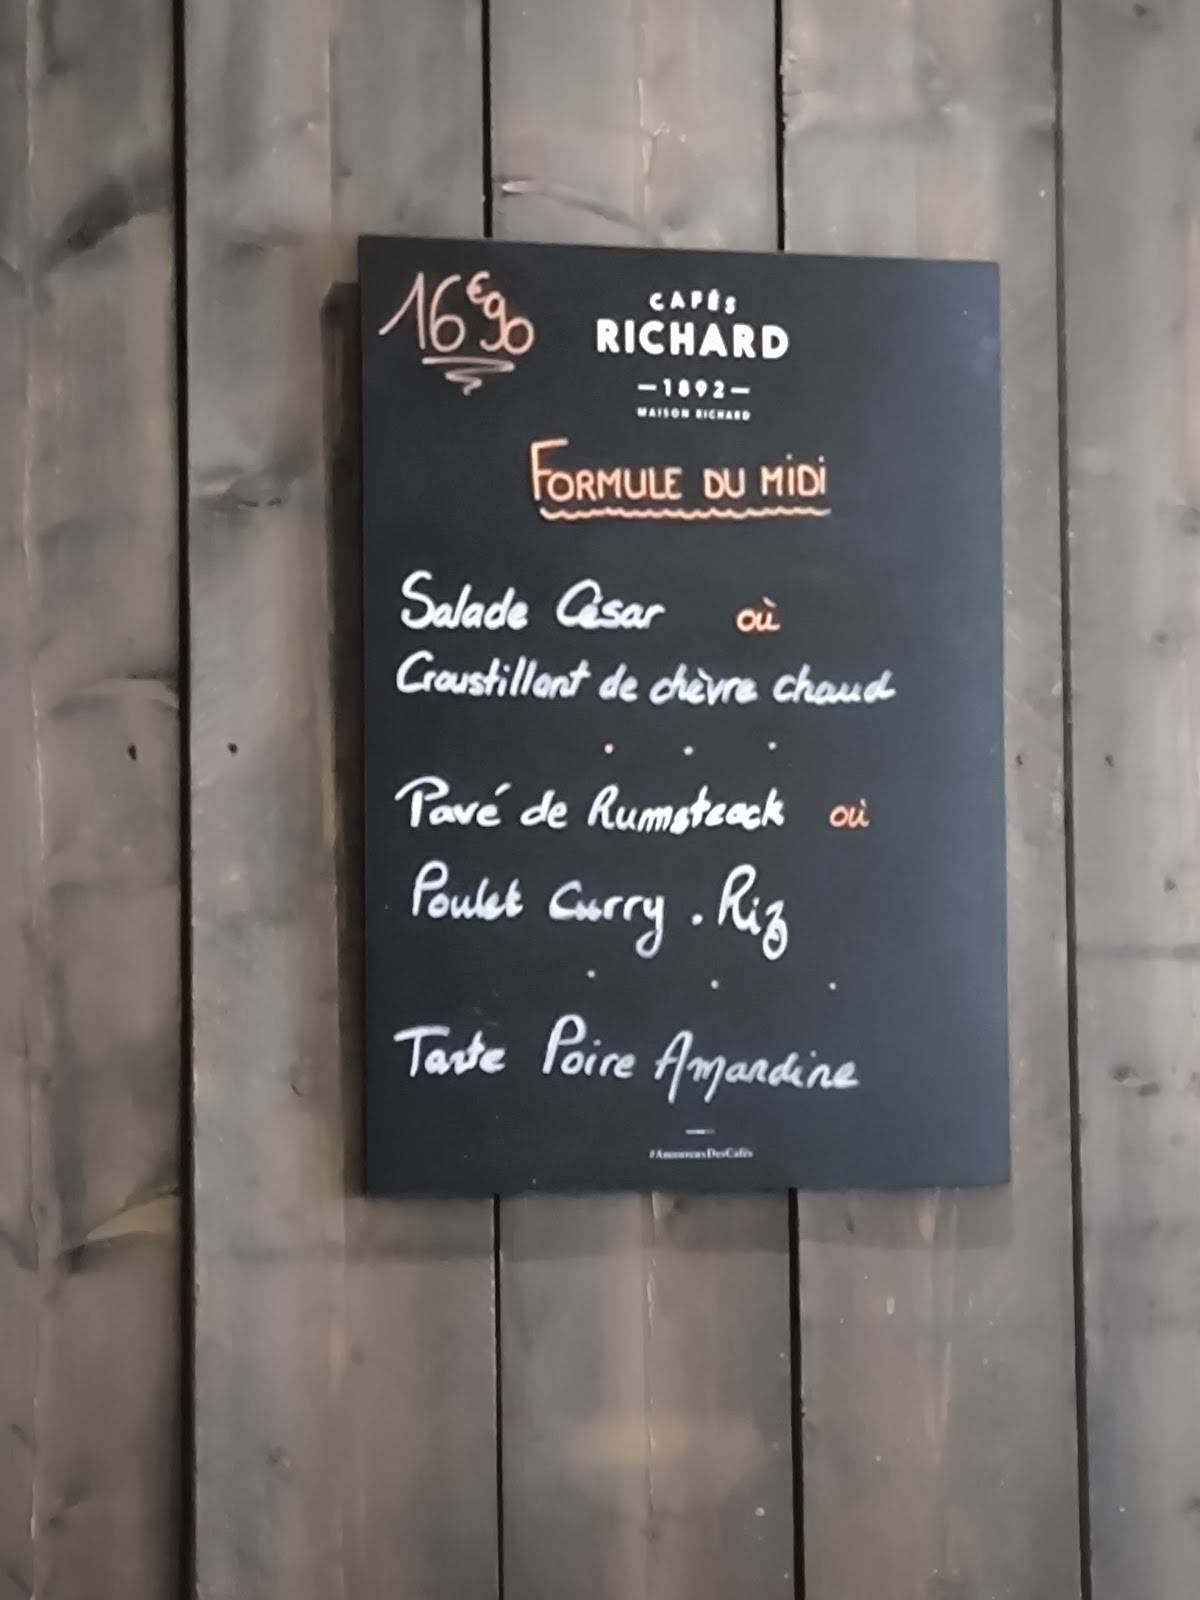 16€90
CAFÉS
RICHARD
—1892—
MAISON RICHARD
FORMULE DU MIDI
Salade César où
Croustillant de chèvre chaud
. . .
Pavé de Rumsteack où
Poulet Curry . Riz
. . .
Tarte Poire Amandine
#AmoureuxDesCafés